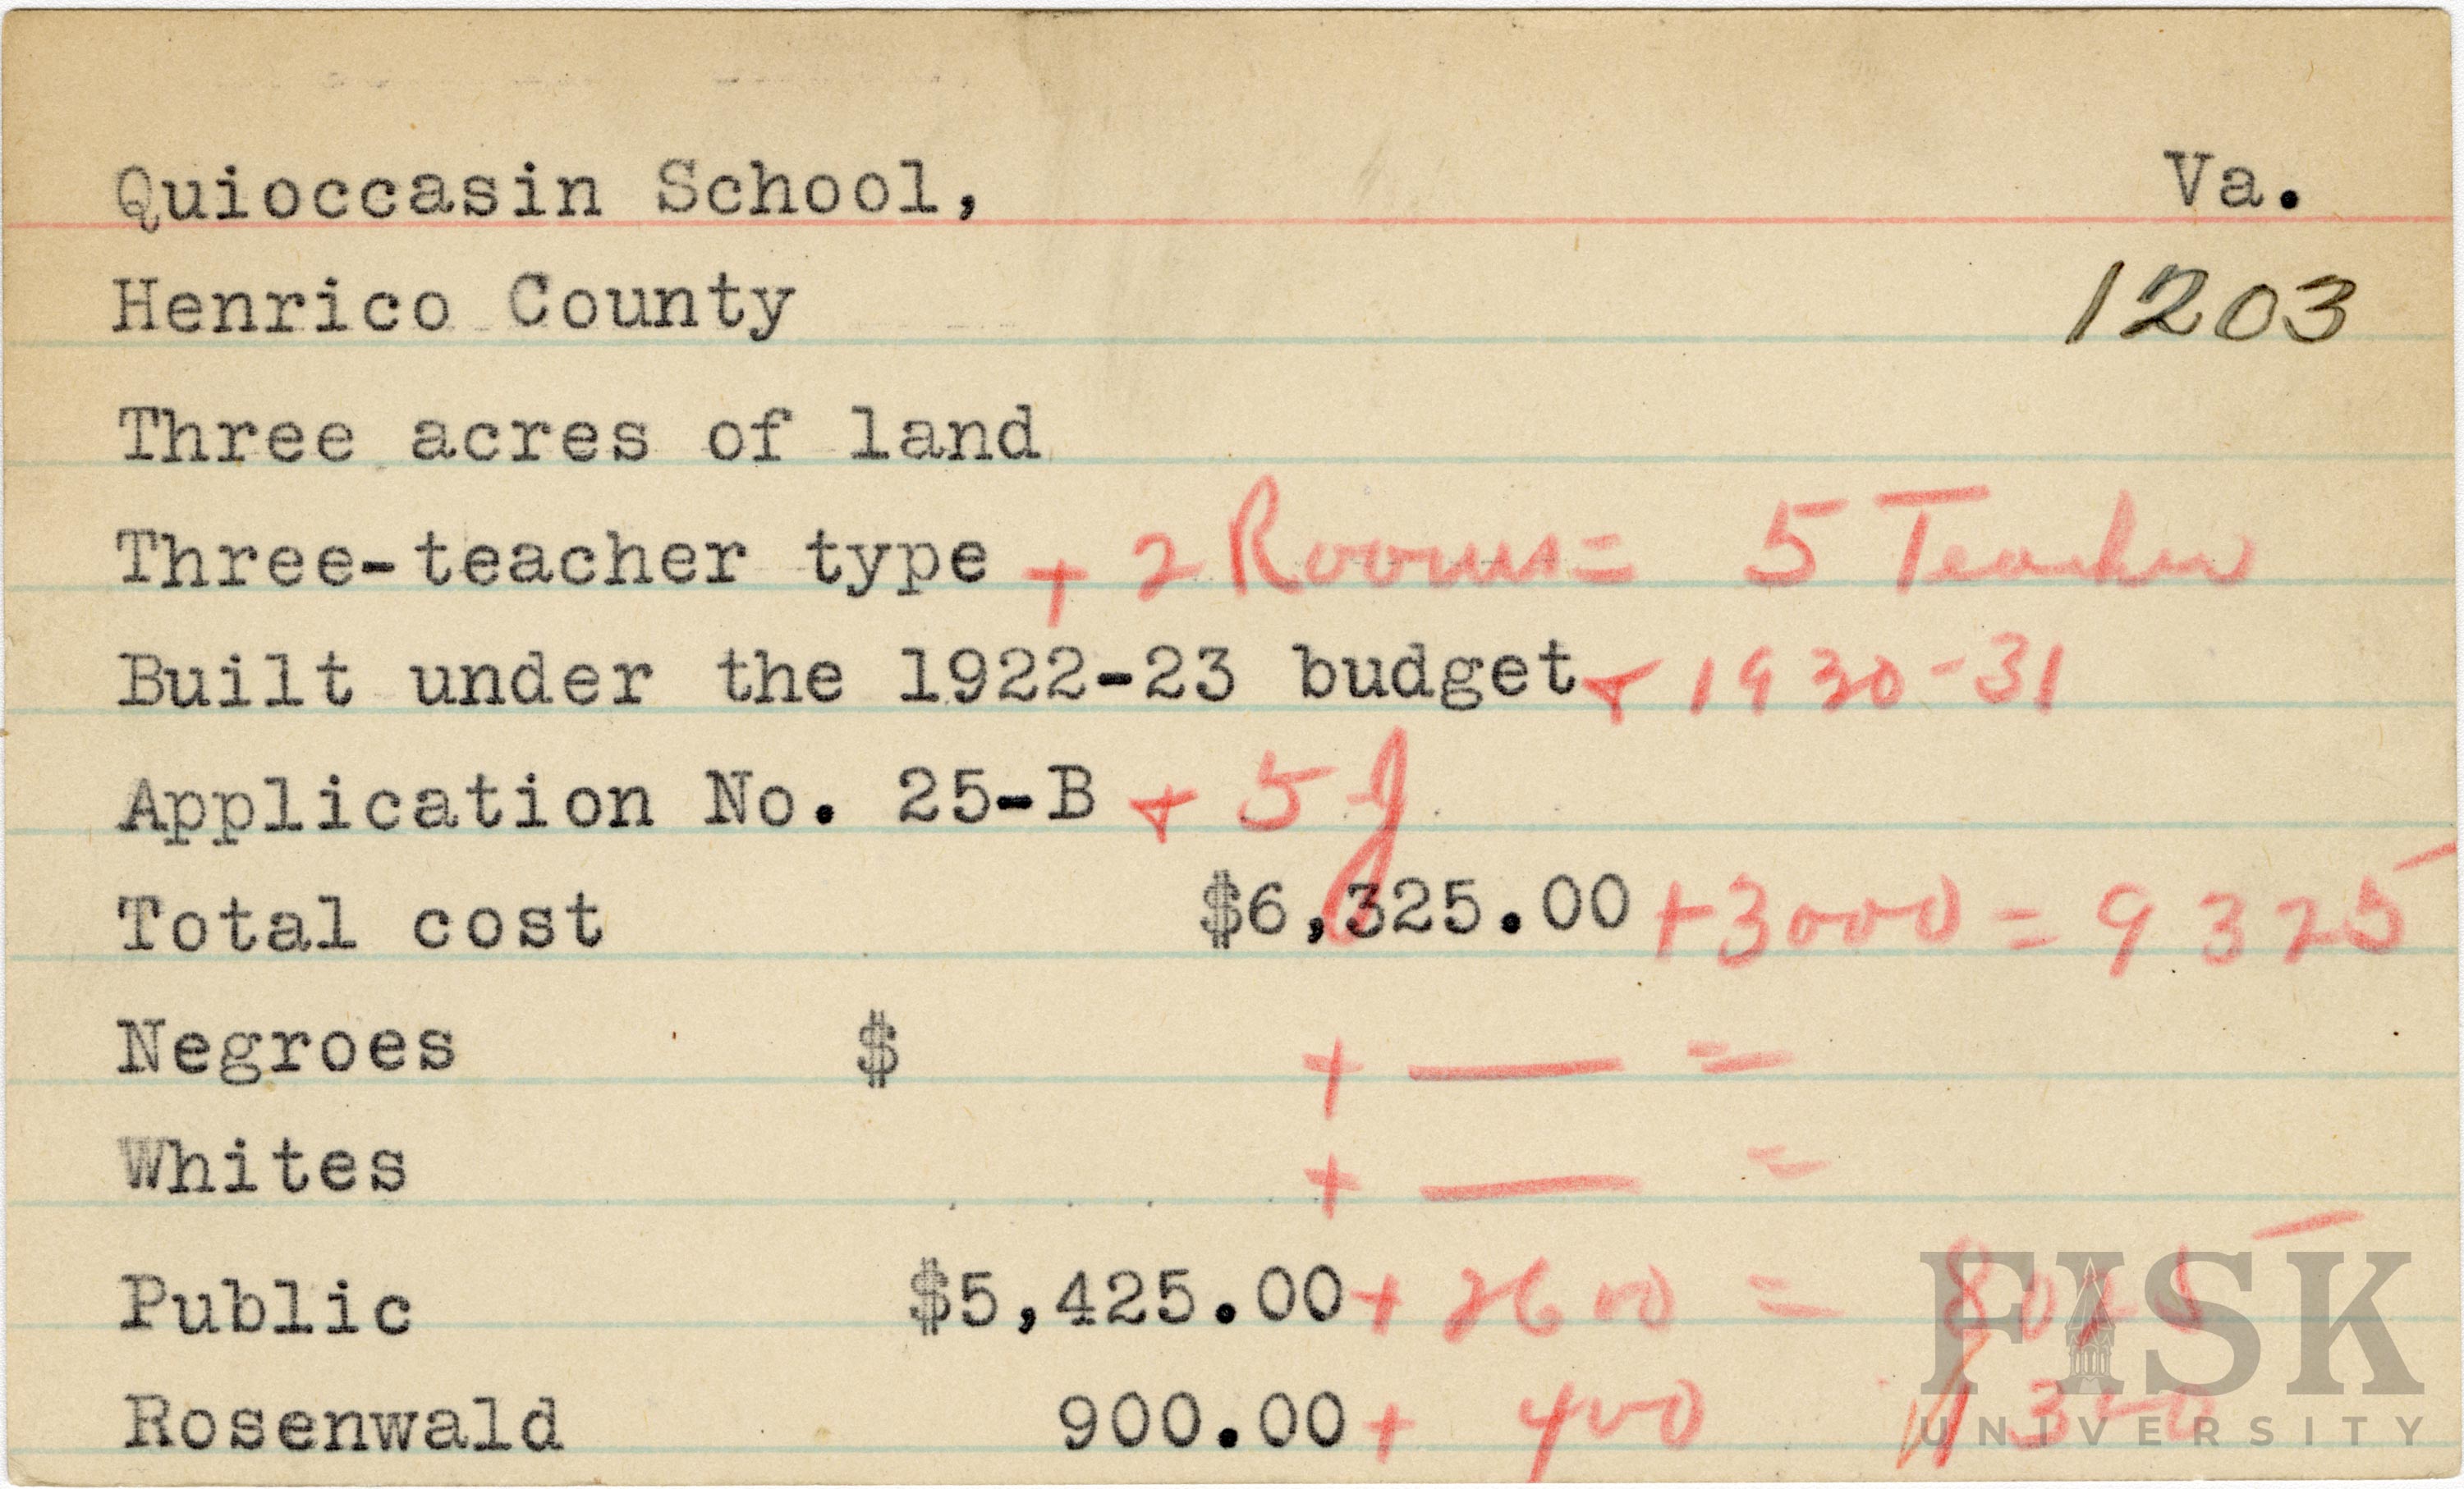 Quioccasin School, Va.
Henrico County 1203
Three acres of land
Three-teacher type + 2 Rooms = 5 Teacher
Built under the 1922-23 budget + 1930-31
Application No. 25-B + 5 J
Total cost $6,325.00 + 3000 = 9325
Negroes $ + — =
Whites + — =
Public $5,425.00 + 2600 = 8025
Rosenwald 900.00 + 400 1300
FISK
UNIVERSITY